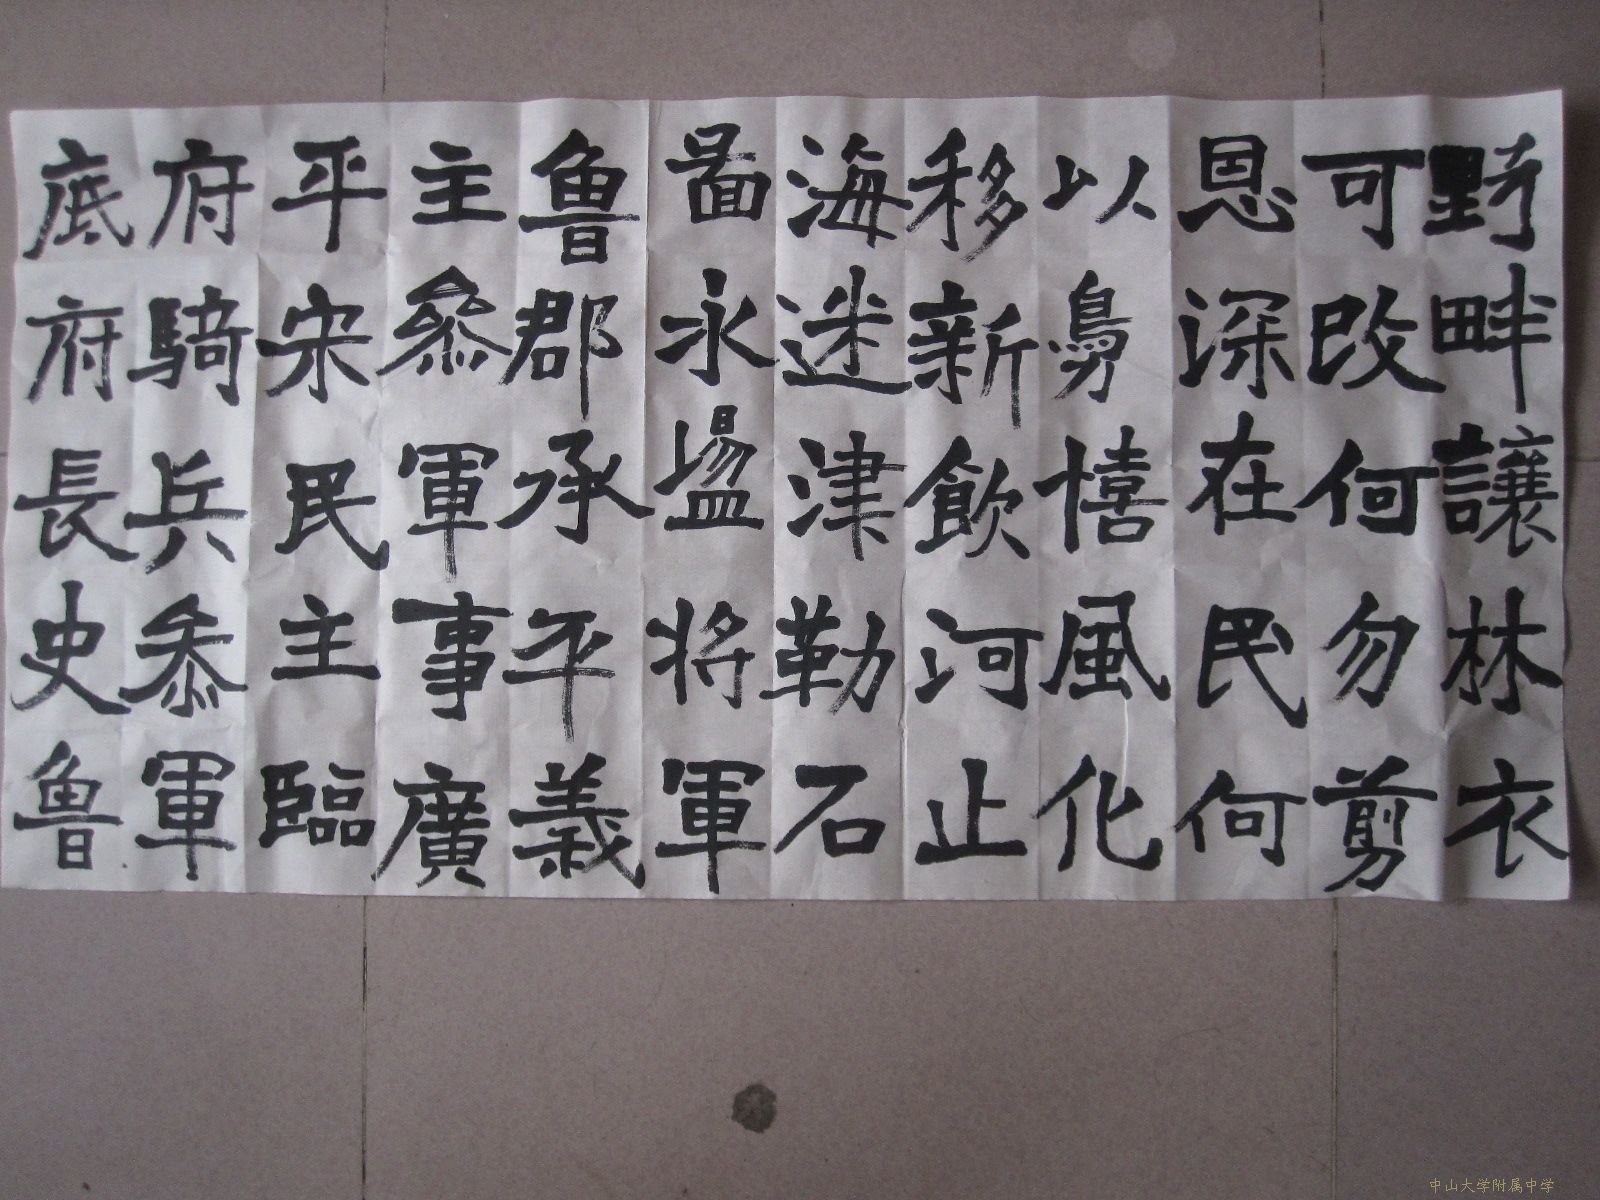 野畔讓林衣
可改何勿剪
恩深在民何
以鳧憘風化
移新飲河止
海迷津勒石
啚永盪將軍
魯郡承平義
主叅軍事廣
平宋民主臨
府騎兵叅軍
底府長史魯
中山大学附属中学